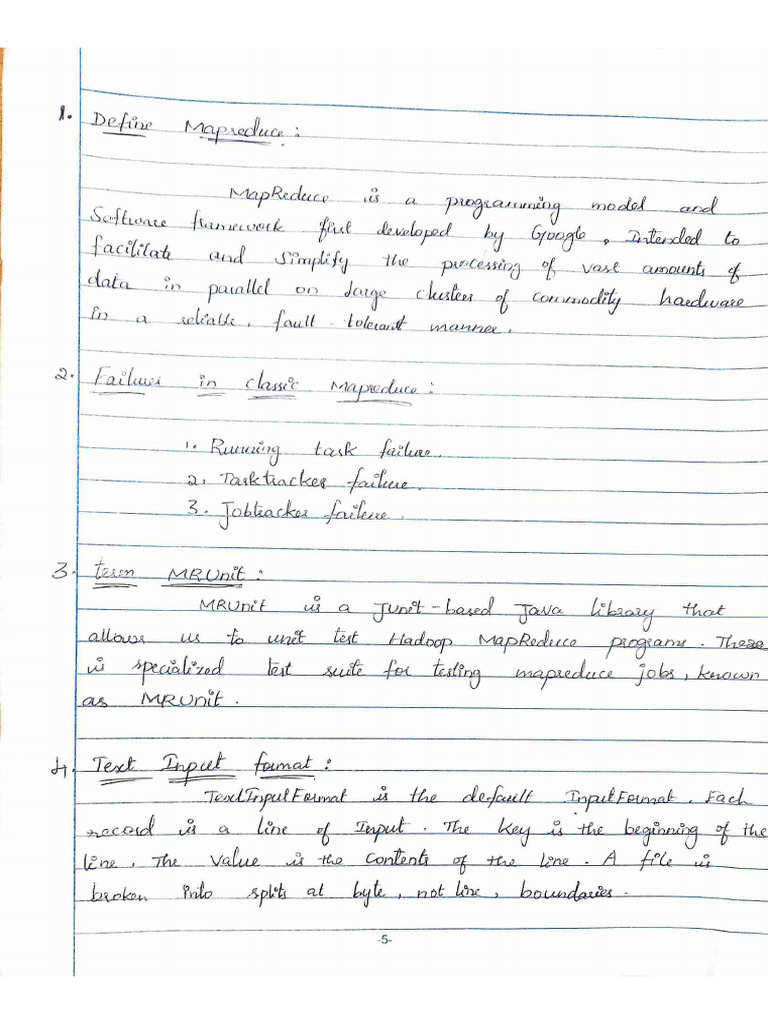 1. Define Mapreduce :
MapReduce is a programming model and
Software framework first developed by Google, Intended to
facilitate and simplify the processing of vast amounts of
data in parallel on large clusters of commodity hardware
in a reliable, fault-tolerant manner.
2. Failures in classic Mapreduce :
1. Running task failure.
2. Tasktracker failure.
3. Jobtracker failure.
3. term MRUnit :
MRUnit is a Junit-based Java library that
allows us to unit test Hadoop MapReduce programs. There
is specialized test suite for testing mapreduce jobs, known
as MRUnit.
4. Text Input format :
TextInputFormat is the default InputFormat. Each
record is a line of Input. The key is the beginning of the
line, The value is the contents of the line. A file is
broken into splits at byte, not line, boundaries.
-5-